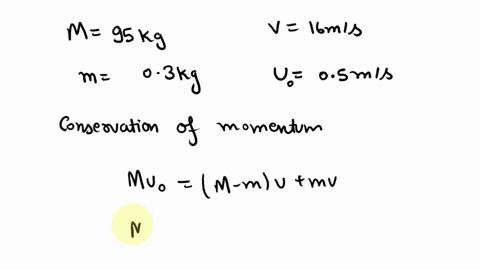 M = 95 kg V = 16 m/s
m = 0.3 kg U₀ = 0.5 m/s
Conservation of momentum
M υ₀ = (M-m) υ + mv
N